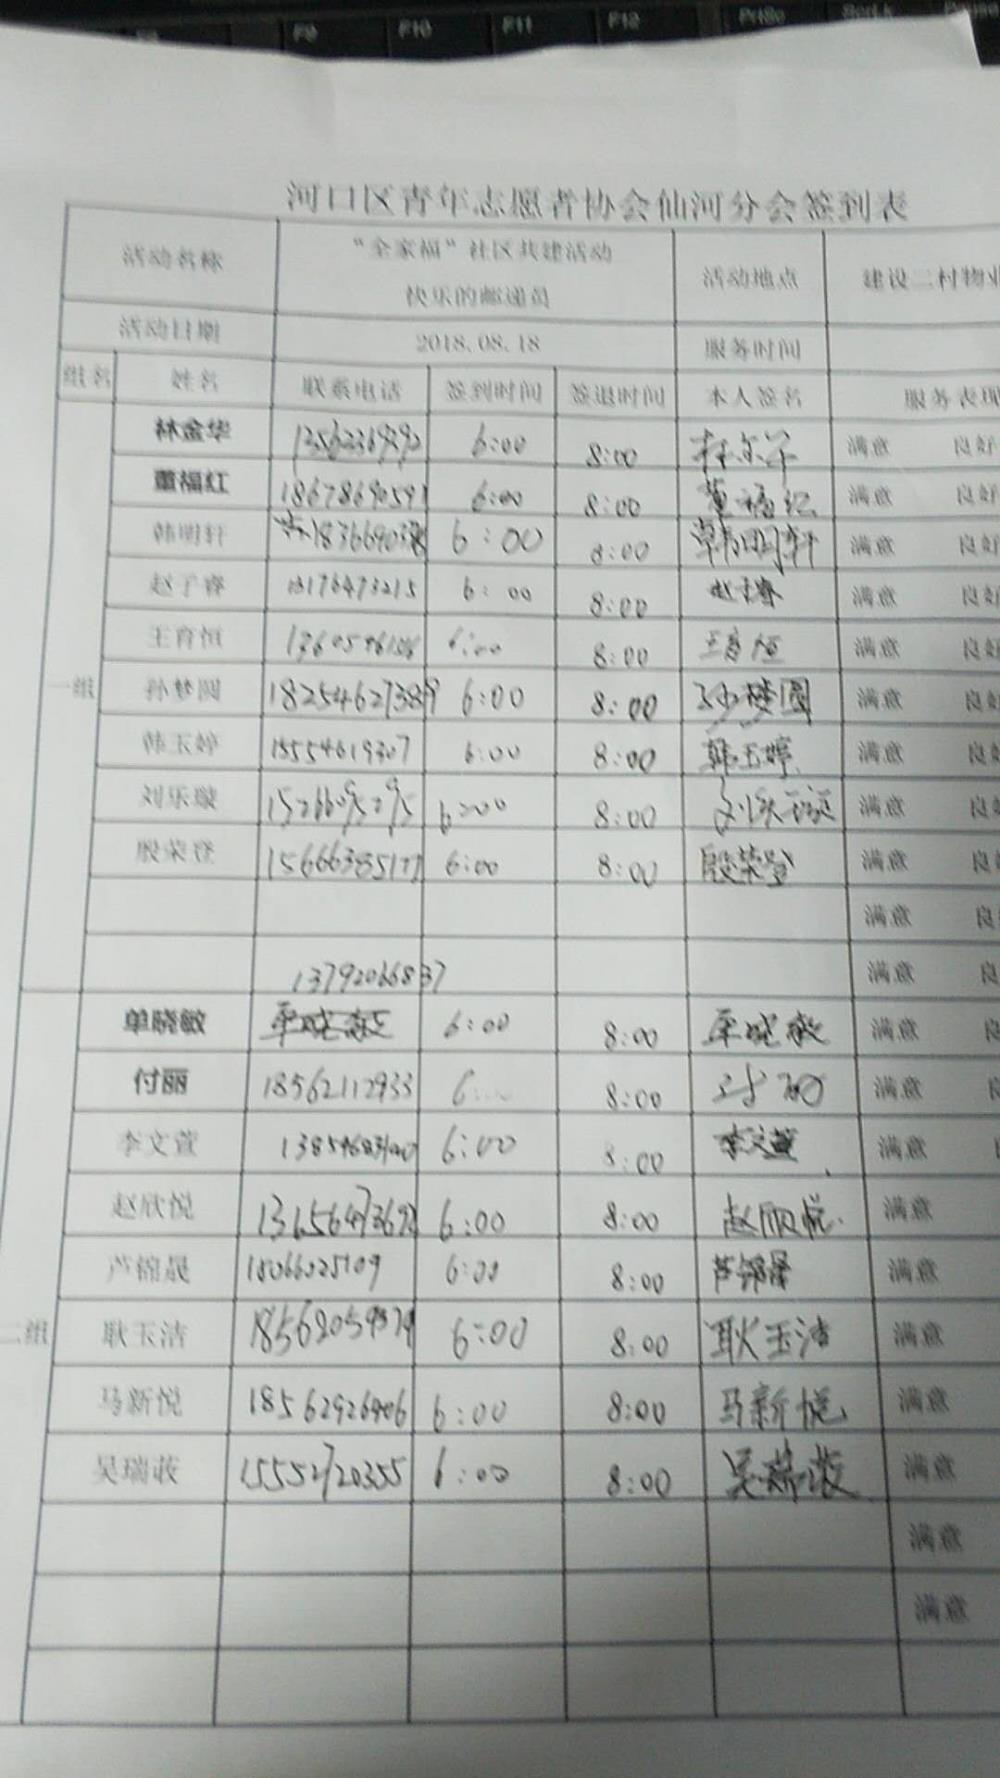 F9 F10 F11 F12 PrtSc
河口区青年志愿者协会仙河分会签到表
活动名称 “全家福”社区共建活动 快乐的邮递员 活动地点 建设二村物业
活动日期 2018.08.18 服务时间
组名 姓名 联系电话 签到时间 签退时间 本人签名 服务表现
林金华 6:00 8:00 满意 良好
董福红 6:00 8:00 董福红 满意 良好
韩明轩 6:00 8:00 韩明轩 满意 良好
赵子睿 13176473215 6:00 8:00 赵子睿 满意 良好
王育恒 6:00 8:00 王育恒 满意 良好
一组 孙梦圆 6:00 8:00 满意 良好
韩玉婷 15554619307 6:00 8:00 韩玉婷 满意 良好
刘乐璇 15266095295 6:00 8:00 满意 良好
殷荣登 6:00 8:00 殷荣登 满意 良好
满意 良
13792066837 满意 良
单晓敏 单晓敏 6:00 8:00 单晓敏 满意 良
付丽 18562112933 8:00 付丽 满意
李文萱 6:00 8:00 李文萱 满意
赵欣悦 6:00 8:00 赵欣悦 满意
芦锦晟 6:00 8:00 满意
二组 耿玉洁 6:00 8:00 耿玉洁 满意
马新悦 18562926406 6:00 8:00 马新悦 满意
吴瑞莜 15552720355 6:00 8:00 满意
满意
满意